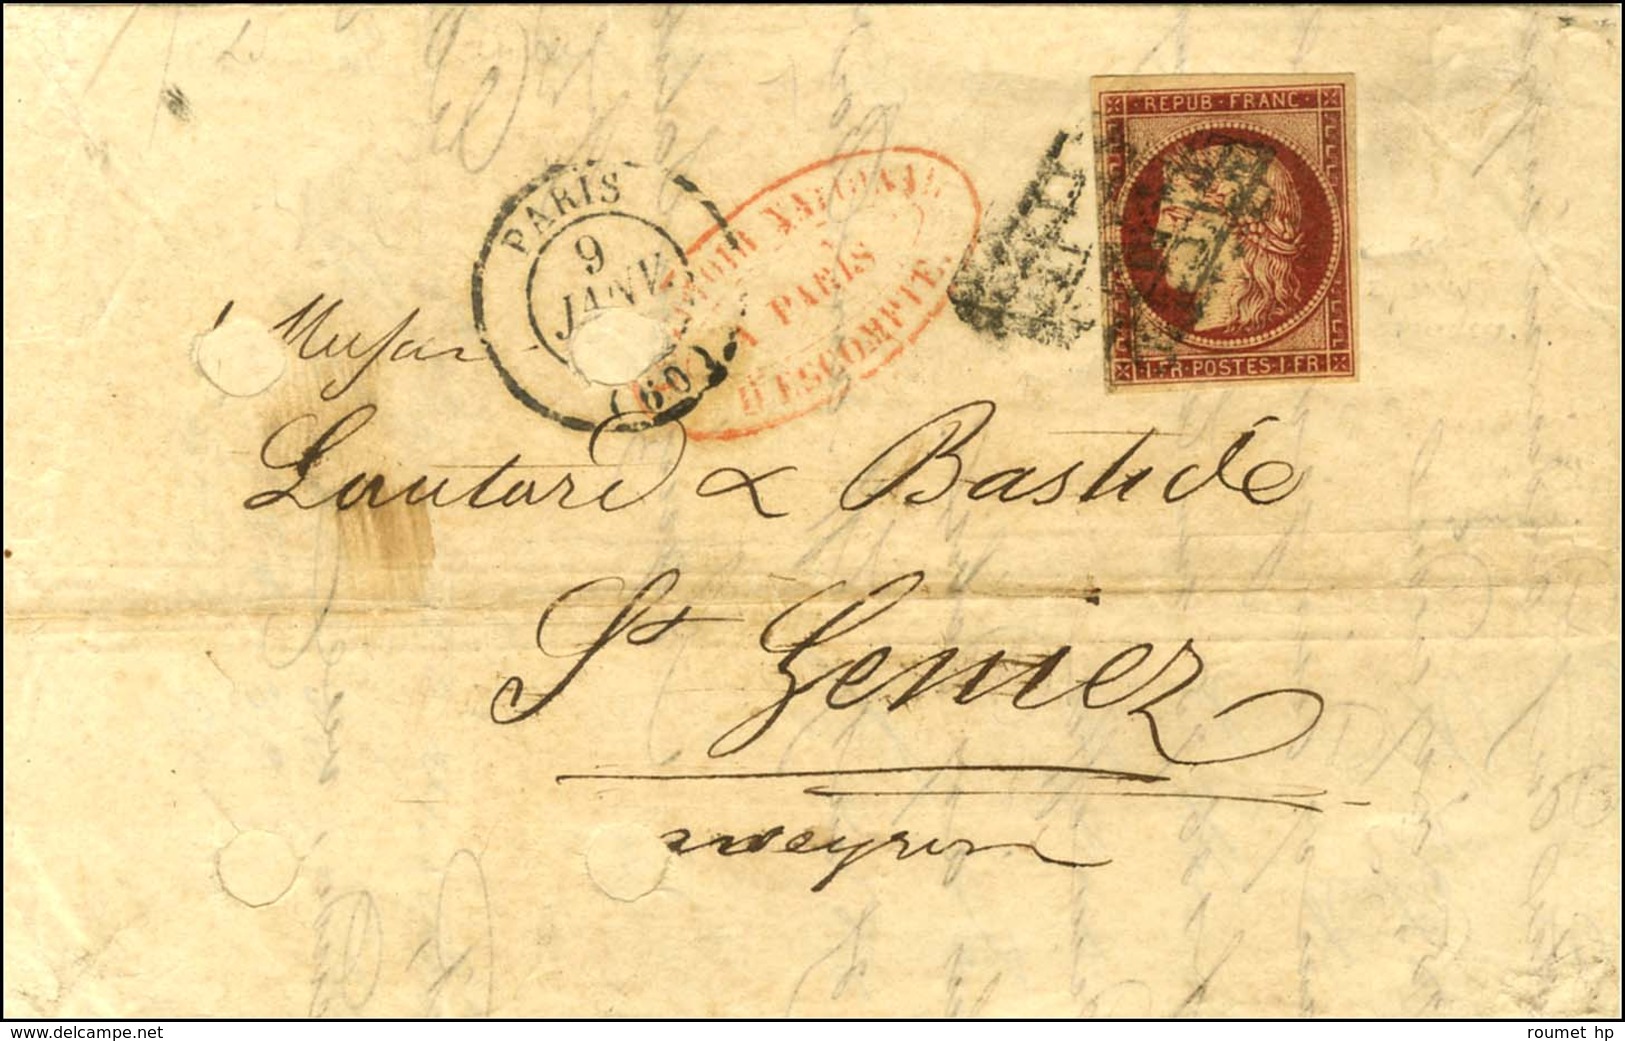 REPUB · FRANC ·
1 · FR · POSTES · 1 · FR
PARIS
9
JANV.
(60)
NATIONAL
A PARIS
D'ESCOMPTE.
Lautard & Bastide
St Geniez
aveyron
www.delcampe.net
roumet hp